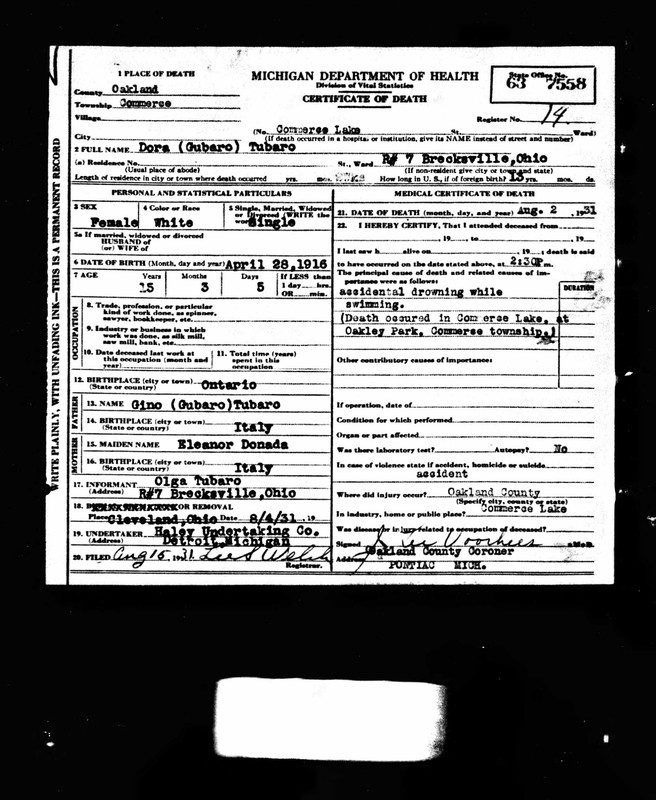 WRITE PLAINLY, WITH UNFADING INK—THIS IS A PERMANENT RECORD
1 PLACE OF DEATH
County Oakland
Township Commerce
Village
City
MICHIGAN DEPARTMENT OF HEALTH
Division of Vital Statistics
CERTIFICATE OF DEATH
State Office No.
63 7558
Register No. 14
(No. Commerce Lake St. Ward)
(If death occurred in a hospital or institution, give its NAME instead of street and number)
2 FULL NAME Dora (Gubaro) Tubaro
(a) Residence No. St., Ward R# 7 Brecksville, Ohio
(Usual place of abode) (If non-resident give city or town and state)
Length of residence in city or town where death occurred yrs. mos. How long in U. S., if of foreign birth? yrs. mos. ds.
PERSONAL AND STATISTICAL PARTICULARS
3 SEX
Female
4 Color or Race
White
5 Single, Married, Widowed or Divorced (WRITE the word)
Single
5a If married, widowed or divorced
HUSBAND of
(or) WIFE of
6 DATE OF BIRTH (Month, day and year) April 28, 1916
7 AGE Years Months Days If LESS than
15 3 5 1 day hrs.
OR min.
OCCUPATION
8. Trade, profession, or particular
kind of work done, as spinner,
sawyer, bookkeeper, etc.
9. Industry or business in which
work was done, as silk mill,
saw mill, bank, etc.
10. Date deceased last work at
this occupation (month and
year)
11. Total time (years)
spent in this
occupation
12. BIRTHPLACE (city or town) Ontario
(State or country)
FATHER
13. NAME Gino (Gubaro)Tubaro
14. BIRTHPLACE (city or town)
(State or country) Italy
MOTHER
15. MAIDEN NAME Eleanor Donada
16. BIRTHPLACE (city or town)
(State or country) Italy
17. INFORMANT Olga Tubaro
(Address) R#7 Brecksville, Ohio
18. OR REMOVAL
Place Cleveland, Ohio Date 8/4/31 , 19
19. UNDERTAKER Haley Undertaking Co.
(Address) Detroit Michigan
20. FILED Aug 5, 1931. Lee S Welch
Registrar.
MEDICAL CERTIFICATE OF DEATH
21. DATE OF DEATH (month, day, and year) Aug. 2 , 1931
22. I HEREBY CERTIFY, That I attended deceased from
, 19 to , 19
I last saw h alive on , 19 ; death is said
to have occurred on the date stated above, at 2:30P m.
The principal cause of death and related causes of importance were as follows:
DURATION
accidental drowning while
swimming.
(Death occured in Commerce Lake, at
Oakley Park, Commerce township.)
Other contributory causes of importance:
If operation, date of
Condition for which performed
Organ or part affected
Was there laboratory test? Autopsy? No
In case of violence state if accident, homicide or suicide
accident
Where did injury occur? Oakland County
(Specify city, county or state)
In industry, home or public place? Commerce Lake
Was disease or injury related to occupation of deceased?
Signed Voorhees M.D.
Oakland County Coroner
Address PONTIAC MICH.